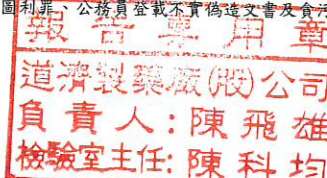 圖利罪、公務員登載不實偽造文書及食
報告專用章
道濟製藥廠(股)公司
負責人:陳飛雄
檢驗室主任:陳科均